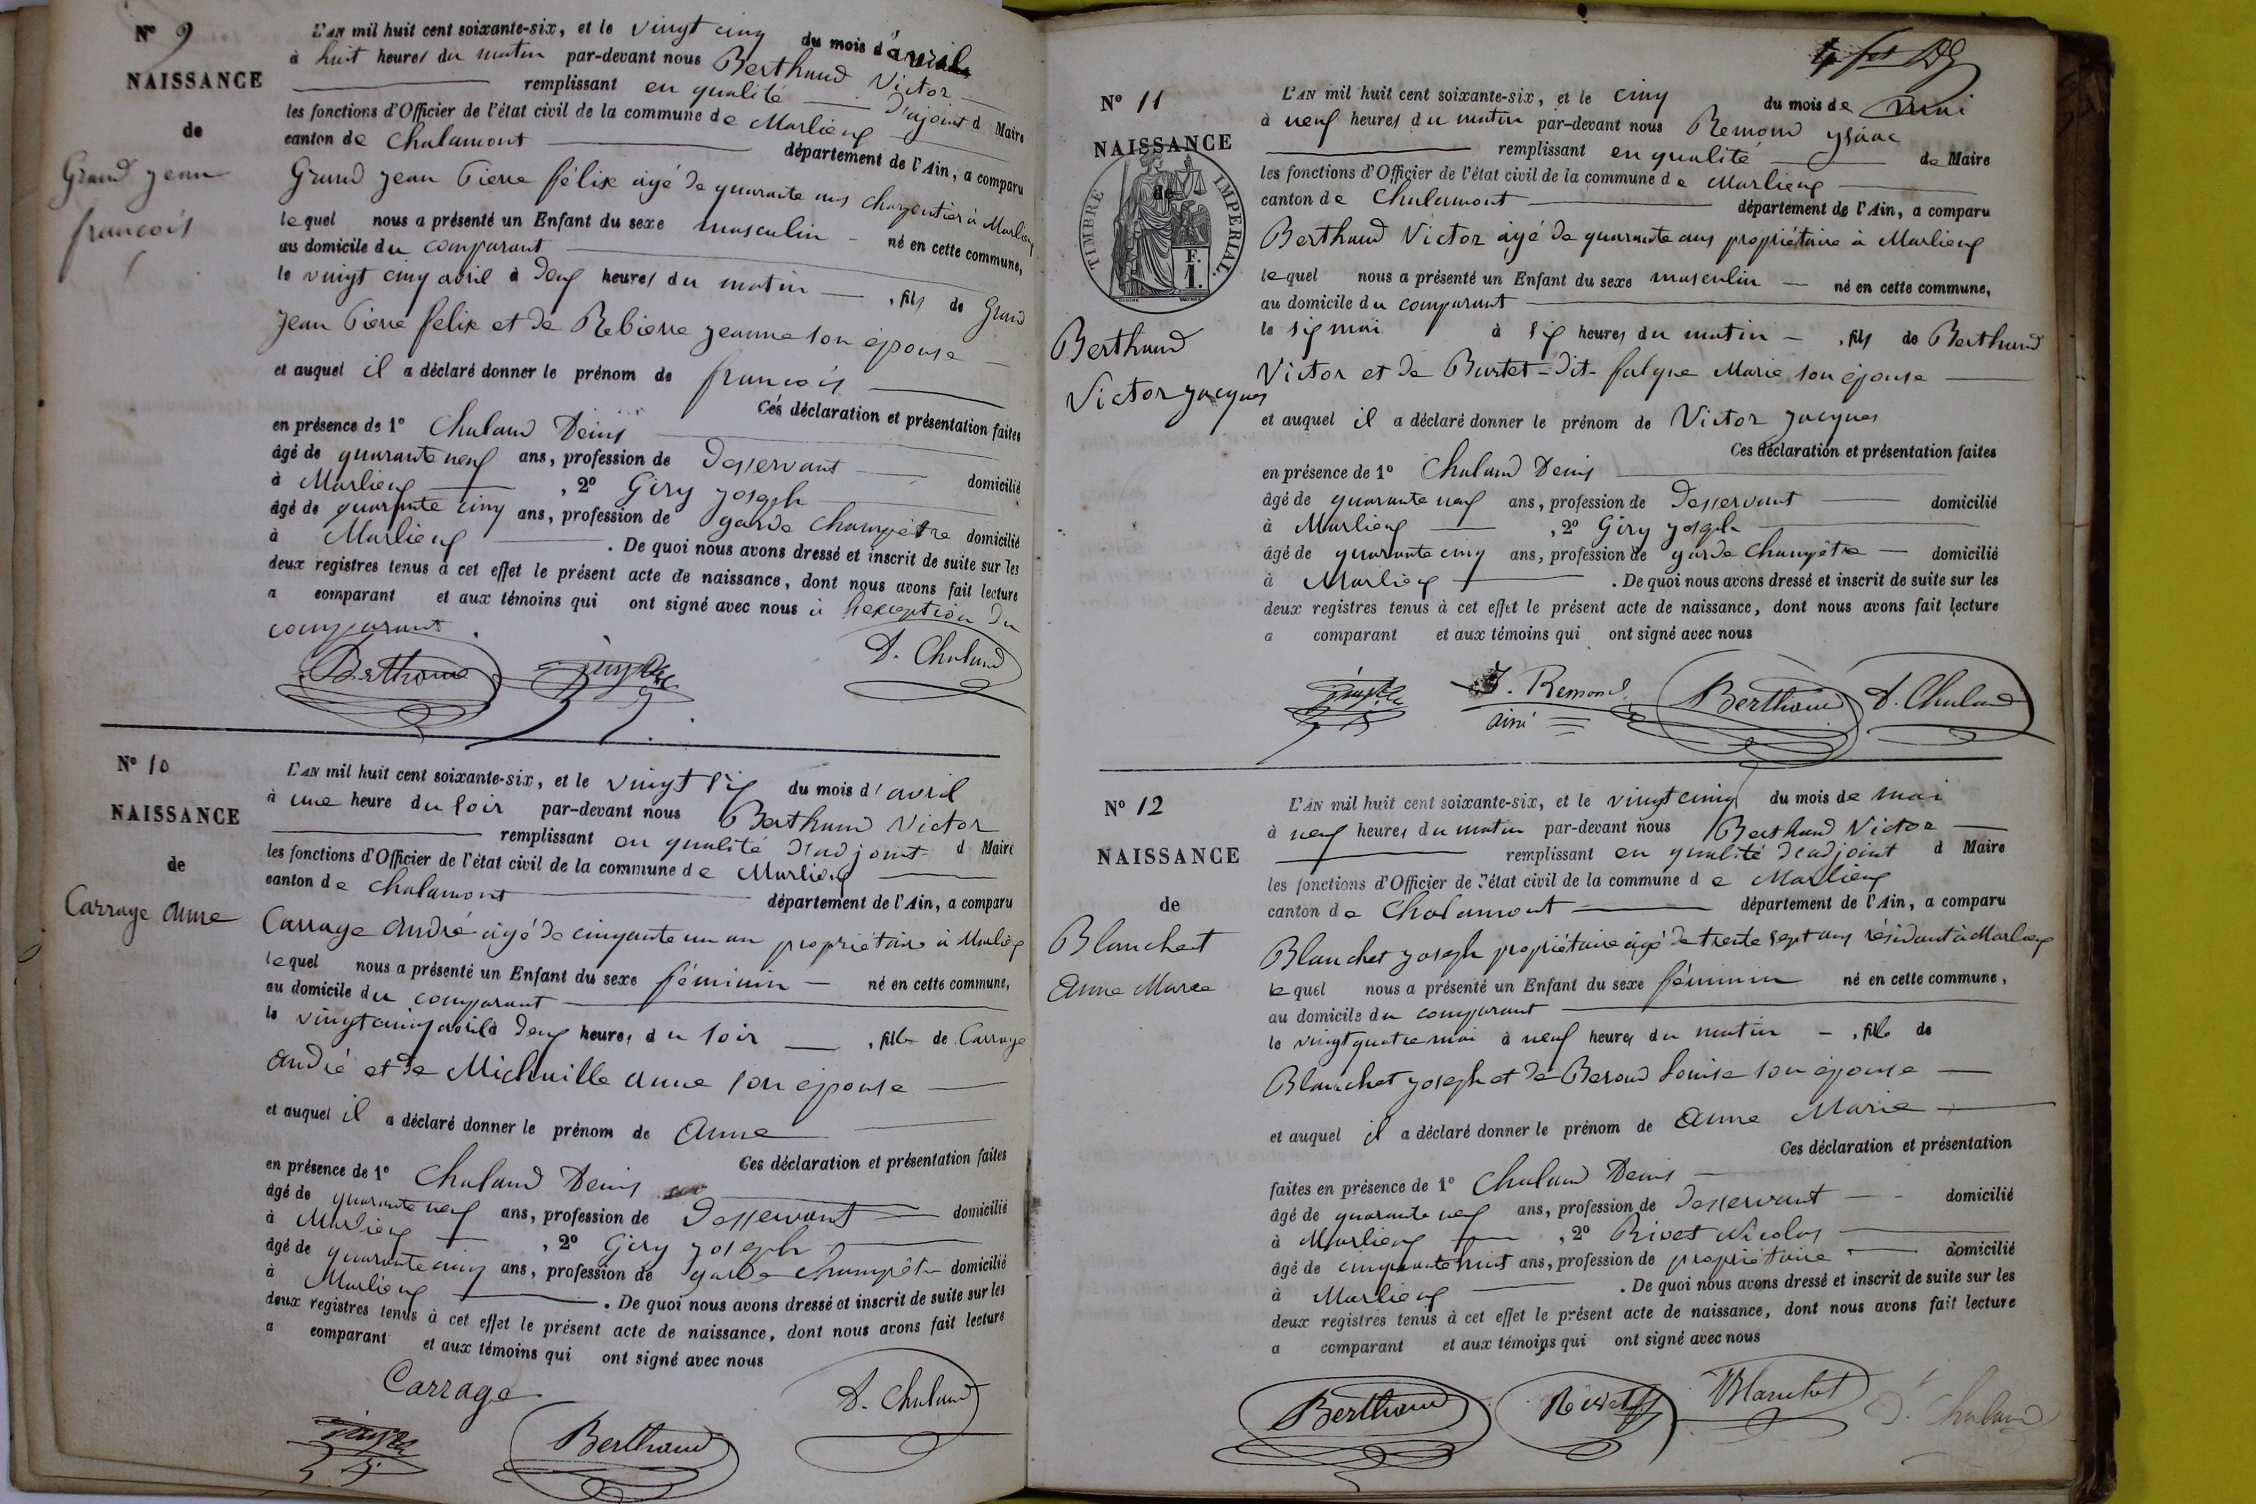 N° 9
NAISSANCE
de
Grand Jean
françois
L'AN mil huit cent soixante-six, et le vingt cinq du mois d'avril
à huit heures du matin par-devant nous Berthaud Victor
remplissant en qualité d'ajoint d Maire
les fonctions d'Officier de l'état civil de la commune de Marlieux
canton de Chalamont département de l'Ain, a comparu
Grand Jean Pierre félix agé de quarante ans charpentier à Marlieux
lequel nous a présenté un Enfant du sexe masculin né en cette commune,
au domicile du comparant
le vingt cinq avril à deux heures du matin , fils de Grand
Jean Pierre felix et de Rebierre Jeanne son épouse
et auquel il a déclaré donner le prénom de françois
Ces déclaration et présentation faites
en présence de 1° Chaland Denis
âgé de quarante neuf ans, profession de desservant domicilié
à Marlieux , 2° Giry Joseph
âgé de quarante cinq ans, profession de garde champêtre domicilié
à Marlieux . De quoi nous avons dressé et inscrit de suite sur les
deux registres tenus à cet effet le présent acte de naissance, dont nous avons fait lecture
a comparant et aux témoins qui ont signé avec nous à l'exception du
comparant.
Berthaud D. Chaland
N° 10
NAISSANCE
de
Carrage Anne
L'AN mil huit cent soixante-six, et le vingt six du mois d'avril
à une heure du soir par-devant nous Berthaud Victor
remplissant en qualité d'adjoint d Maire
les fonctions d'Officier de l'état civil de la commune de Marlieux
canton de Chalamont département de l'Ain, a comparu
Carrage André agé de cinquante un an propriétaire à Marlieux
lequel nous a présenté un Enfant du sexe féminin né en cette commune,
au domicile du comparant
le vingt cinq avril à deux heures du soir , fille de Carrage
André et de Michaille Anne son épouse
et auquel il a déclaré donner le prénom de Anne
Ces déclaration et présentation faites
en présence de 1° Chaland Denis
âgé de quarante neuf ans, profession de desservant domicilié
à Marlieux , 2° Giry Joseph
âgé de quarante cinq ans, profession de garde champêtre domicilié
à Marlieux . De quoi nous avons dressé et inscrit de suite sur les
deux registres tenus à cet effet le présent acte de naissance, dont nous avons fait lecture
a comparant et aux témoins qui ont signé avec nous
Carrage D. Chaland
Berthaud
N° 11
NAISSANCE
de
TIMBRE IMPÉRIAL.
1 F.
Berthaud
Victor Jacques
L'AN mil huit cent soixante-six, et le cinq du mois de mai
à neuf heures du matin par-devant nous Remond Ysaac
remplissant en qualité de Maire
les fonctions d'Officier de l'état civil de la commune de Marlieux
canton de Chalamont département de l'Ain, a comparu
Berthaud Victor agé de quarante ans propriétaire à Marlieux
lequel nous a présenté un Enfant du sexe masculin né en cette commune,
au domicile du comparant
le six mai à six heures du matin , fils de Berthaud
Victor et de Burtet-dit-falque Marie son épouse
et auquel il a déclaré donner le prénom de Victor Jacques
Ces déclaration et présentation faites
en présence de 1° Chaland Denis
âgé de quarante neuf ans, profession de desservant domicilié
à Marlieux , 2° Giry Joseph
âgé de quarante cinq ans, profession de garde champêtre domicilié
à Marlieux . De quoi nous avons dressé et inscrit de suite sur les
deux registres tenus à cet effet le présent acte de naissance, dont nous avons fait lecture
a comparant et aux témoins qui ont signé avec nous
J. Remond Berthaud D. Chaland
ainé
N° 12
NAISSANCE
de
Blanchet
Anne Marie
L'AN mil huit cent soixante-six, et le vingt cinq du mois de mai
à neuf heures du matin par-devant nous Berthaud Victor
remplissant en qualité d'adjoint d Maire
les fonctions d'Officier de l'état civil de la commune de Marlieux
canton de Chalamont département de l'Ain, a comparu
Blanchet Joseph propriétaire agé de trente sept ans résidant à Marlieux
lequel nous a présenté un Enfant du sexe féminin né en cette commune,
au domicile du comparant
le vingt quatre mai à neuf heures du matin , fille de
Blanchet Joseph et de Beroud Louise son épouse
et auquel il a déclaré donner le prénom de Anne Marie
Ces déclaration et présentation
faites en présence de 1° Chaland Denis
âgé de quarante neuf ans, profession de desservant domicilié
à Marlieux , 2° Rivet Nicolas
âgé de cinquante huit ans, profession de propriétaire domicilié
à Marlieux . De quoi nous avons dressé et inscrit de suite sur les
deux registres tenus à cet effet le présent acte de naissance, dont nous avons fait lecture
a comparant et aux témoins qui ont signé avec nous
Berthaud Rivet Blanchet D. Chaland